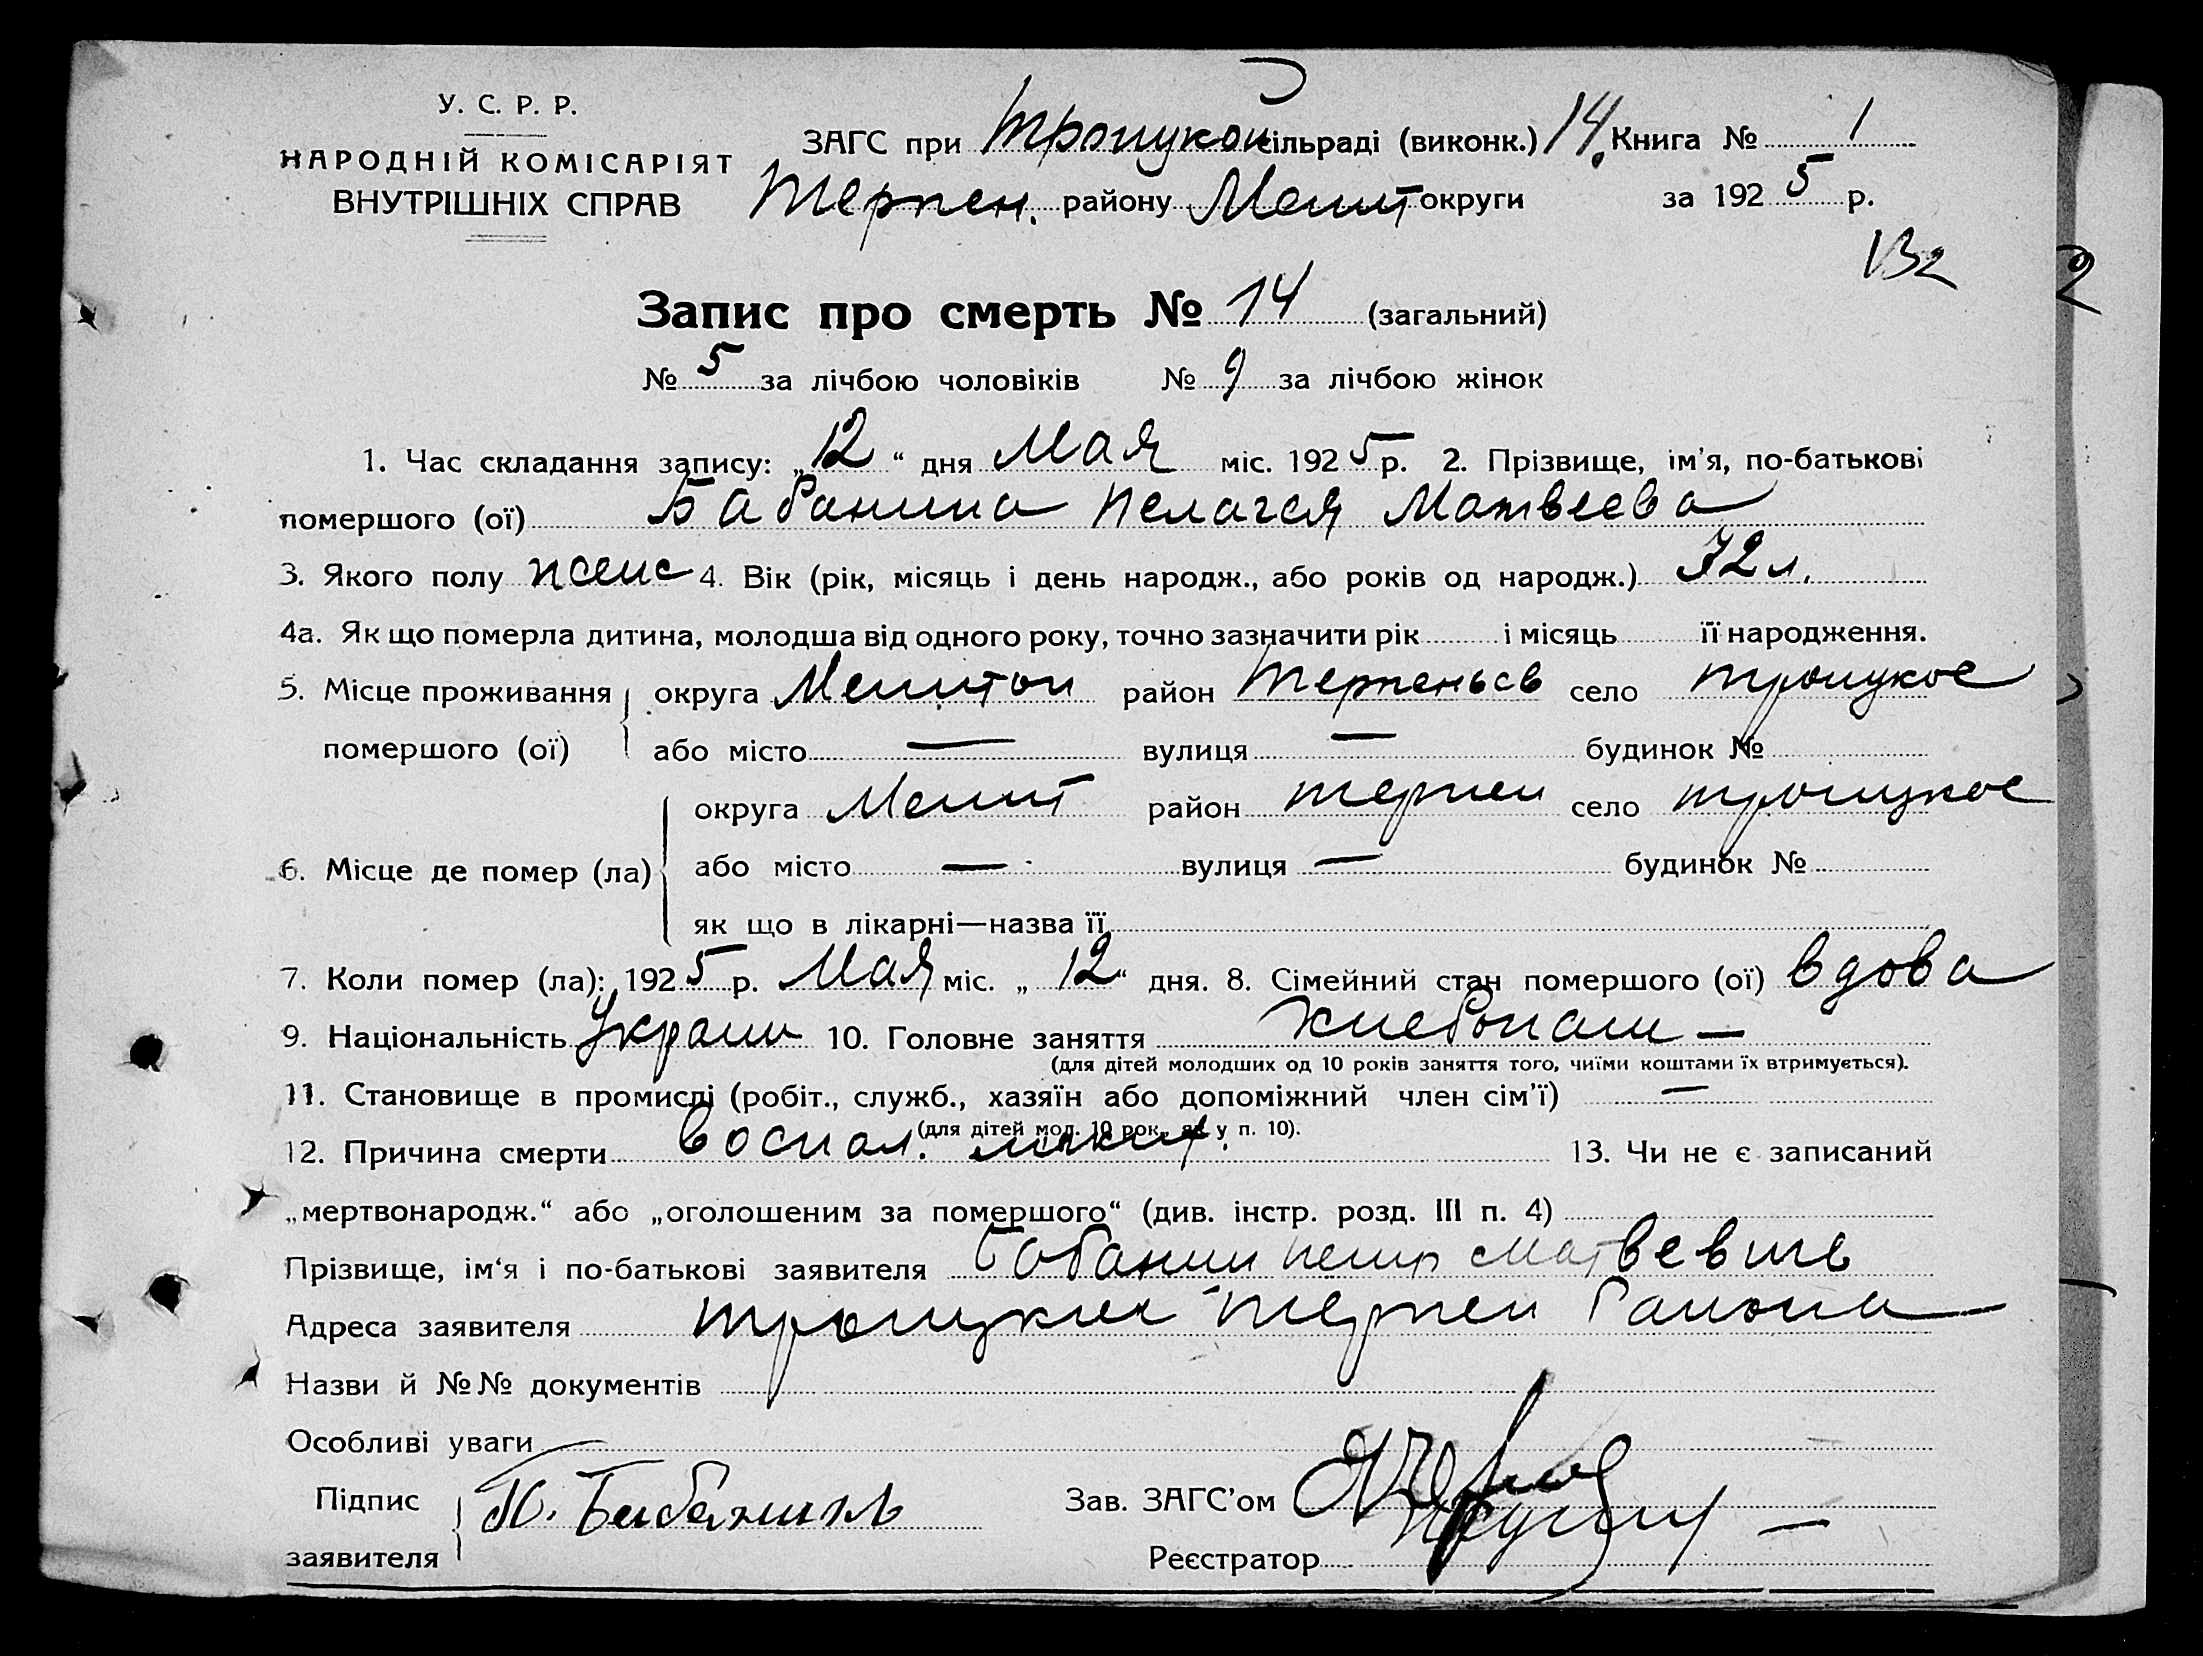 У. С. Р. Р.
НАРОДНІЙ КОМІСАРІЯТ
ВНУТРІШНІХ СПРАВ
ЗАГС при Троицкой сільраді (виконк.) 14. Книга № 1
Терпен. району Мелит округи за 1925 р.
132
2
Запис про смерть № 14 (загальний)
№ 5 за лічбою чоловіків № 9 за лічбою жінок
1. Час складання запису: „12“ дня Мая міс. 1925 р. 2. Прізвище, ім'я, по-батькові
помершого (ої) Бабанина Пелагея Матвеева
3. Якого полу женс 4. Вік (рік, місяць і день народж., або років од народж.) 72 л.
4а. Як що померла дитина, молодша від одного року, точно зазначити рік і місяць її народження.
5. Місце проживання округа Мелитоп район Терпеньев село Троицкое
помершого (ої) або місто — вулиця — будинок №
округа Мелит район Терпен село Троицкое
6. Місце де помер (ла) або місто — вулиця — будинок №
як що в лікарні—назва її
7. Коли помер (ла): 1925 р. Мая міс. „12“ дня. 8. Сімейний стан помершого (ої) вдова
9. Національність Украин 10. Головне заняття хлебопаш —
(для дітей молодших од 10 років заняття того, чиїми коштами їх втримується).
11. Становище в промислі (робіт., служб., хазяїн або допоміжний член сім'ї) —
(для дітей мол. 10 рок. як у п. 10).
12. Причина смерти воспал. легких. 13. Чи не є записаний
„мертвонародж.“ або „оголошеним за помершого“ (див. інстр. розд. III п. 4)
Прізвище, ім'я і по-батькові заявителя Бабанин Петр Матвевич
Адреса заявителя Троицкий Терпен Района
Назви й №№ документів
Особливі уваги
Підпис П. Бабанин Зав. ЗАГС'ом
заявителя Реєстратор